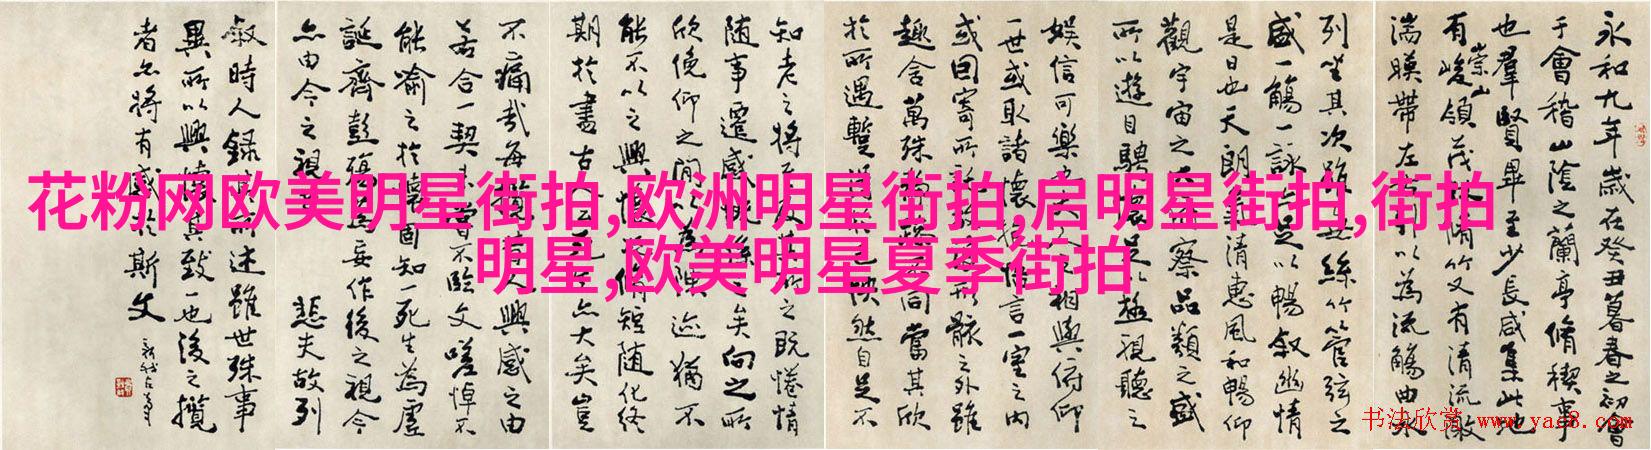 花粉网欧美明星街拍,欧洲明星街拍,启明星街拍,街拍
明星,欧美明星夏季街拍
永和九年歲在癸丑暮春之初會
于會稽山陰之蘭亭脩禊事
也羣賢畢至少長咸集此地
有崇山峻領茂林脩竹又有清流激
湍暎帶左右引以為流觴曲水
列坐其次雖無絲竹管弦之
盛一觴一詠亦足以暢敘幽情
是日也天朗氣清惠風和暢仰
觀宇宙之大俯察品類之盛
所以遊目騁懷足以極視聽之
娛信可樂也夫人之相與俯仰
一世或取諸懷抱悟言一室之內
或因寄所託放浪形骸之外雖
趣舍萬殊靜躁不同當其欣
於所遇暫得於己快然自足不
知老之將至及其所之既惓情
隨事遷感慨係之矣向之所
欣俛仰之間以為陳迹猶不
能不以之興懷況脩短隨化終
期於盡古人云死生亦大矣豈
不痛哉每攬昔人興感之由
若合一契未嘗不臨文嗟悼不
能喻之於懷固知一死生為虛
誕齊彭殤為妄作後之視今
亦由今之視昔悲夫故列
敘時人錄其所述雖世殊事
異所以興懷其致一也後之攬
者亦將有感於斯文
书法欣赏 www.yac8.com